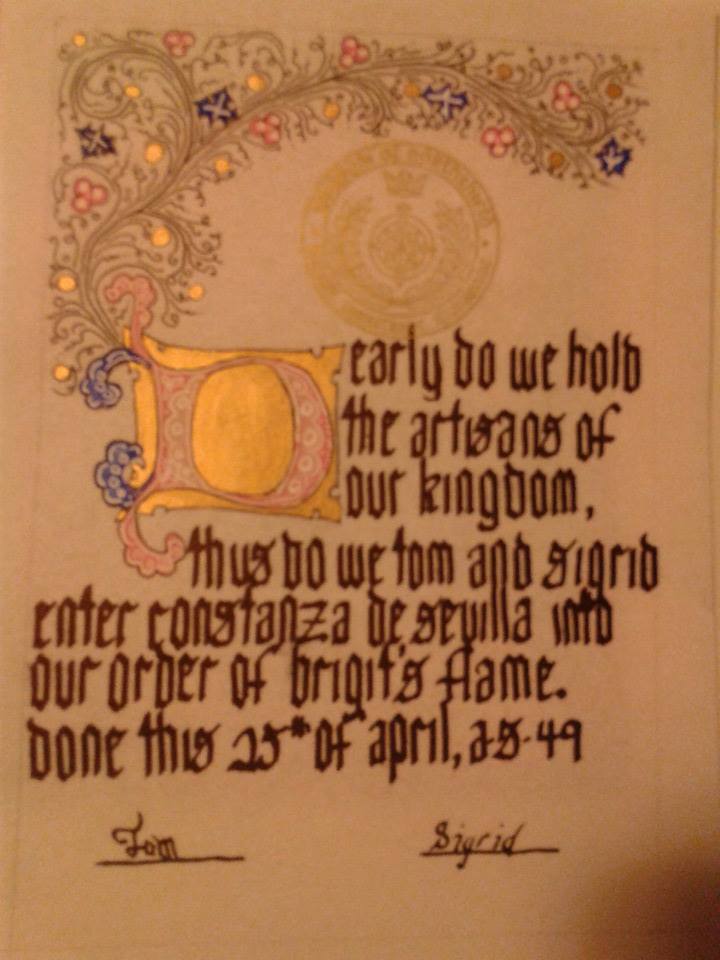 Dearly do we hold
the artisans of
our kingdom,
thus do we tom and sigrid
enter constanza de sevilla into
our order of brigit's flame.
done this 25th of april, a.s. 49
Tom Sigrid